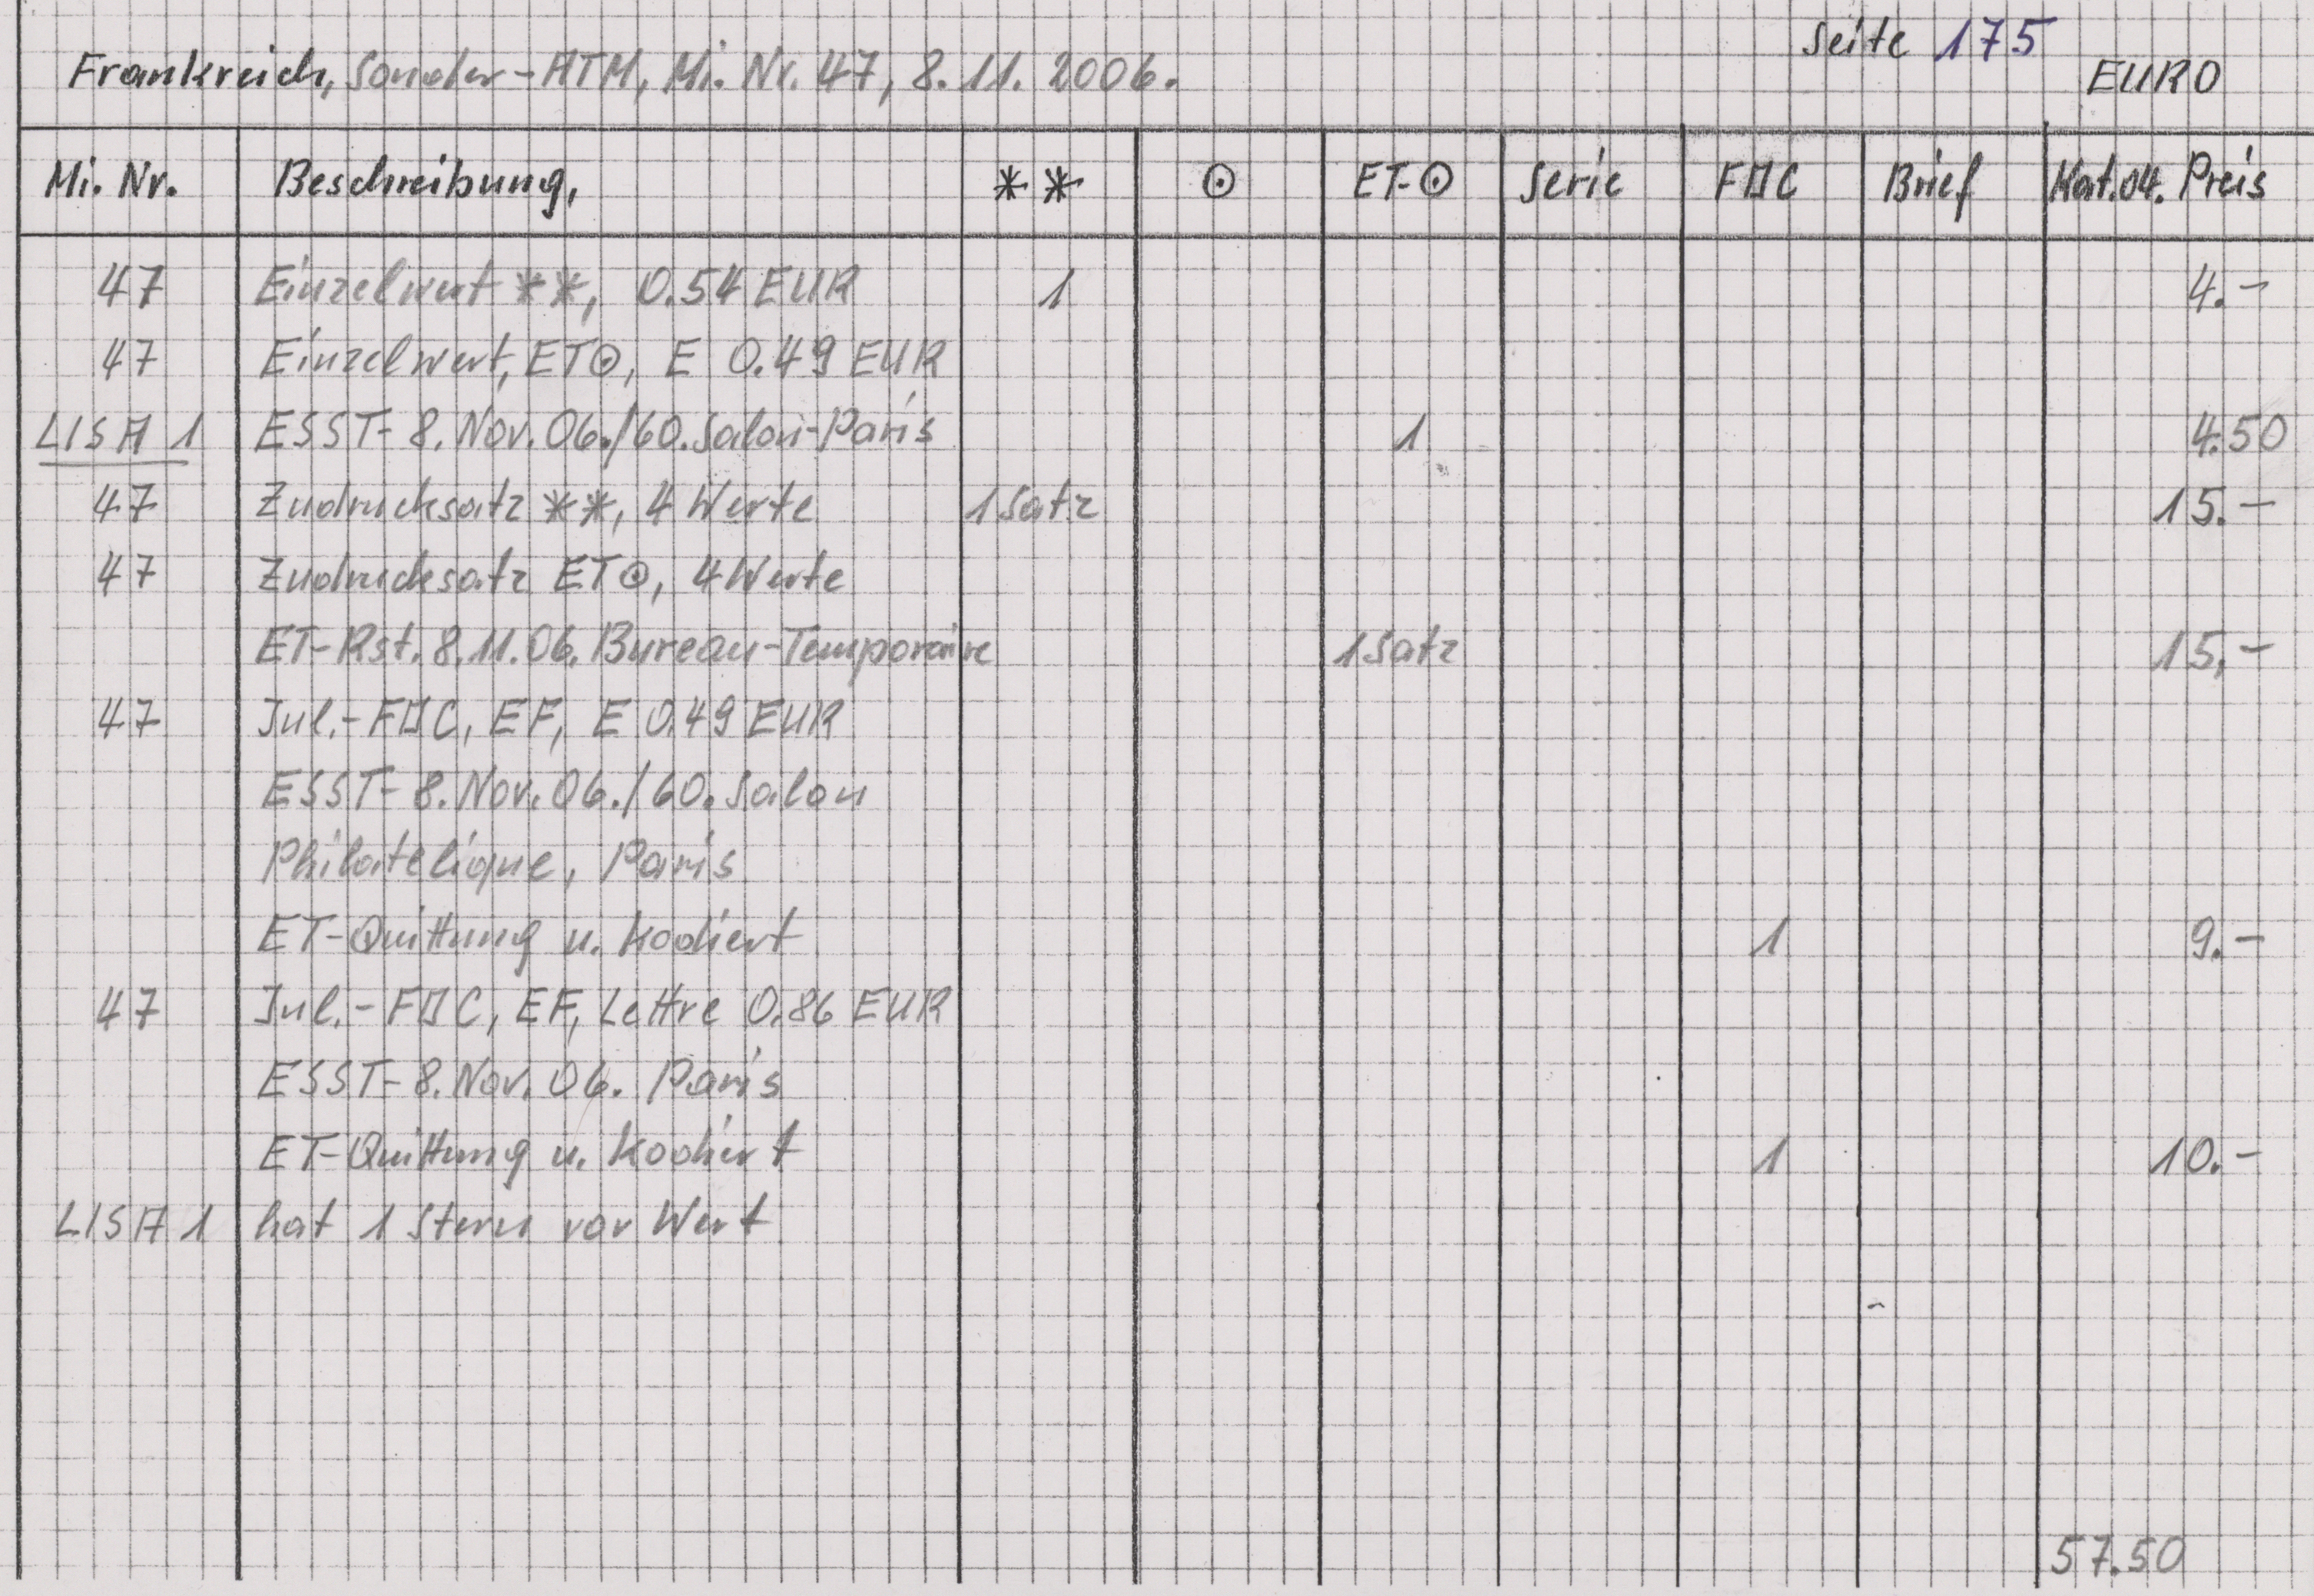 Seite 175
Frankreich, Sonder-ATM, Mi. Nr. 47, 8.11. 2006.
EURO
Mi. Nr. Beschreibung, ** ⊙ ET-⊙ Serie FDC Brief Kat.04. Preis
47 Einzelwert **, 0.54 EUR 1 4.-
47 Einzelwert, ET⊙, E 0.49 EUR
LISA 1 ESST- 8. Nov. 06./60. Salon-Paris 1 4.50
47 Zudrucksatz **, 4 Werte 1 Satz 15.-
47 Zudrucksatz ET⊙, 4 Werte
ET-Rst. 8.11.06. Bureau-Temporaire 1 Satz 15,-
47 Jul.-FDC, EF, E 0.49 EUR
ESST- 8. Nov. 06./60. Salon
Philatelique, Paris
ET-Quittung u. kodiert 1 9.-
47 Jul.-FDC, EF, Lettre 0.86 EUR
ESST- 8. Nov. 06. Paris
ET-Quittung u. kodiert 1 10.-
LISA 1 hat 1 Stern vor Wert
57.50